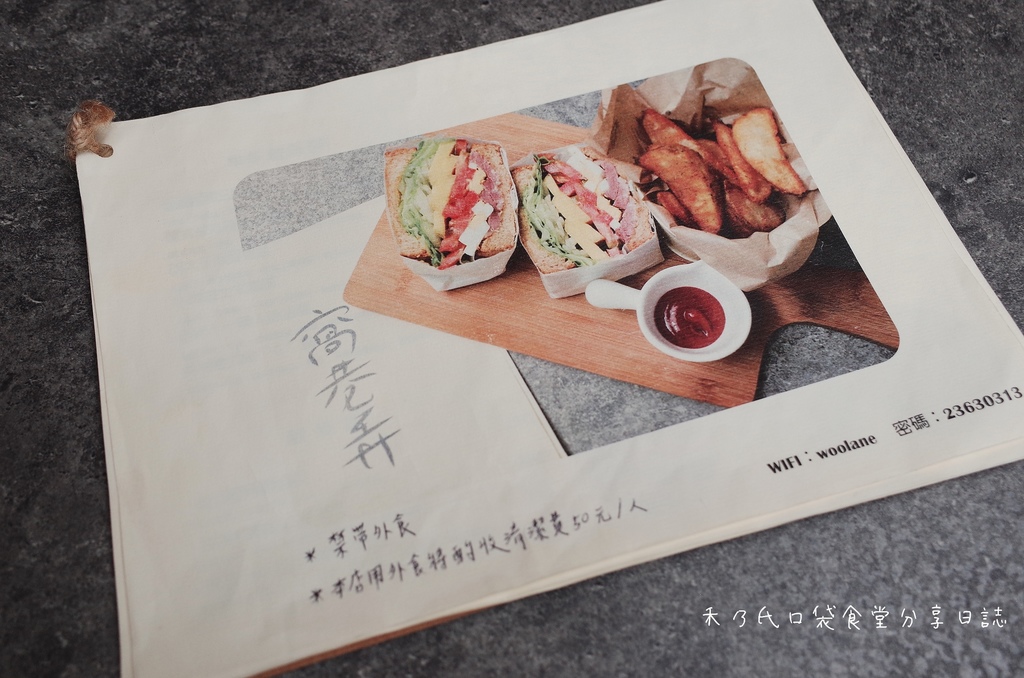 窩巷弄
WIFI：woolane 密碼：23630313
* 禁帶外食
* 本店用外食將酌收清潔費50元/人
禾乃氏口袋食堂分享日誌